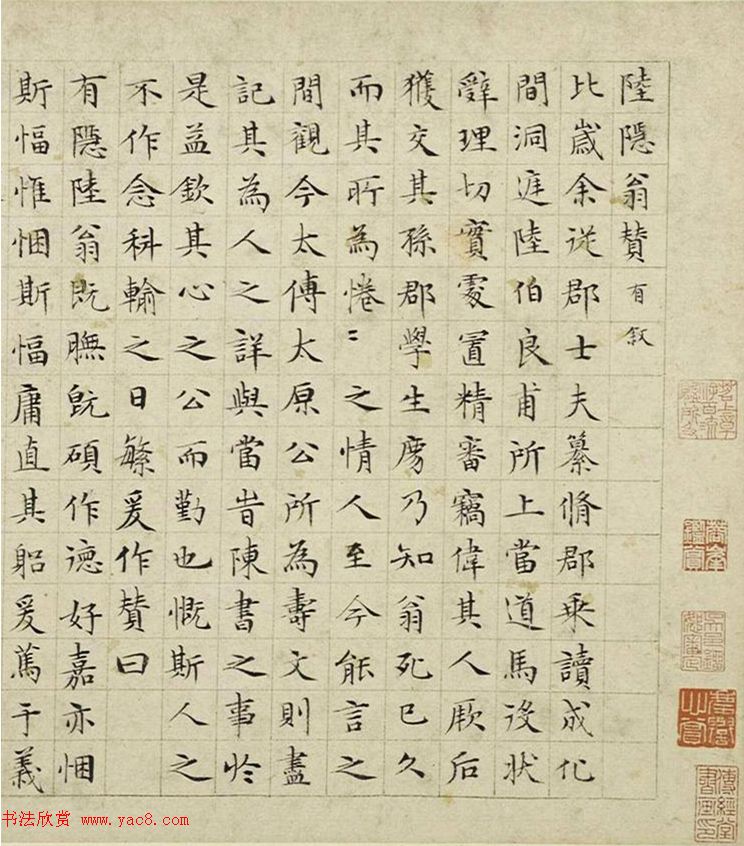 陸隱翁贊有叙
比歲余從郡士夫纂脩郡乘讀成化
間洞庭陸伯良甫所上當道馬役狀
辭理切實處置精審竊偉其人厥后
獲交其孫郡學生乃知翁死已久
而其所為惓〻之情人至今能言之
間觀今太傅太原公所為壽文則盡
記其為人之詳與當旹陳書之事於
是益欽其心之公而勤也慨斯人之
不作念科輸之日繁爰作贊曰
有隱陸翁既膴旣碩作德好嘉亦悃
斯愊惟悃斯愊庸直其躳爰篤于義
书法欣赏 www.yac8.com